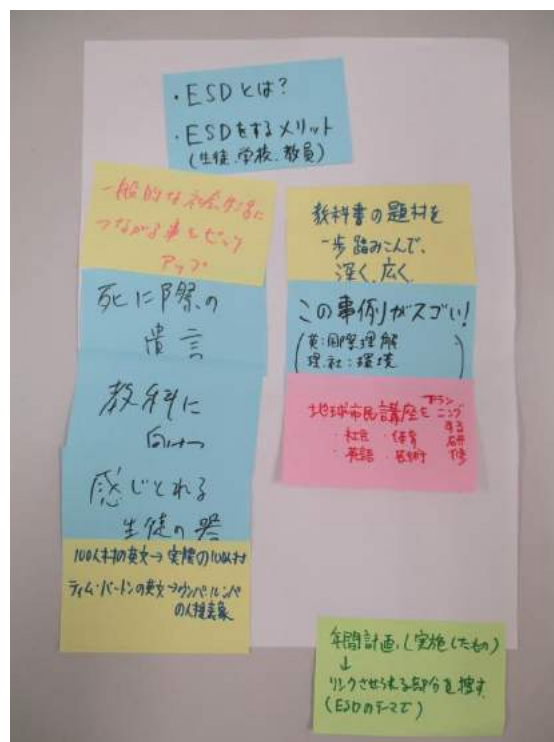 ・ESDとは?
・ESDをするメリット
(生徒、学校、教員)
一般的な社会
つながる事をピック
アップ
死に際の
遺言
教科に
向けて
感じとれる
生徒の器
100人村の英文→実際の100人村
ティム・バートンの英文→ウンパ・ルンパ
の人種
教科書の題材を
一歩踏みこんで、
深く、広く
この事例がスゴい!
(英:国際理解
理、社:環境)
地球市民講座を
プランニング
する
研修
・社会 ・体育
・英語 ・芸術
年間計画、(実施したもの)
↓
リンクさせられる部分を探す
(ESDのテーマで)